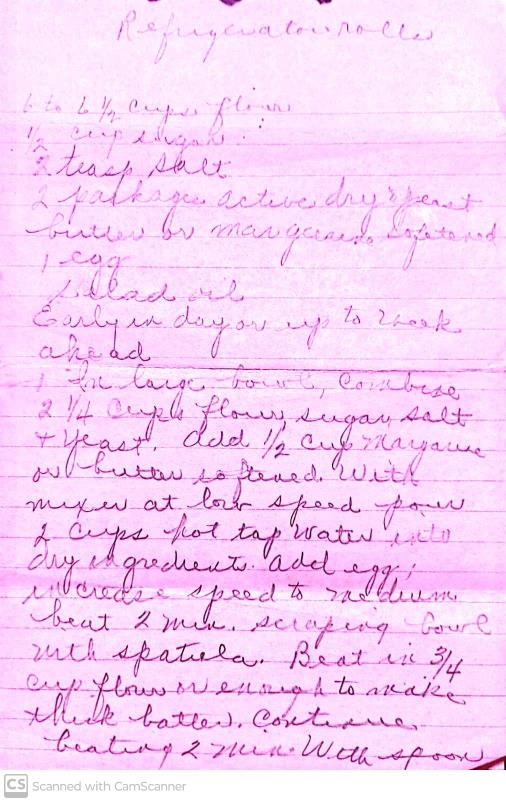 Refrigerator rolls
6 to 6 1/2 cups flour
1/2 cup sugar
2 teasp salt
2 packages active dry yeast
butter or margarine softened
1 egg
salad oil
Early in day or up to week
ahead
1 In large bowl, combine
2 1/4 cups flour sugar, salt
+ yeast. Add 1/2 cup Margarine
or butter softened. With
mixer at low speed pour
2 cups hot tap water into
dry ingredients. add egg;
increase speed to medium
beat 2 min. scraping bowl
with spatula. Beat in 3/4
cup flour or enough to make
thick batter. Continue
beating 2 min. With spoon
CS Scanned with CamScanner